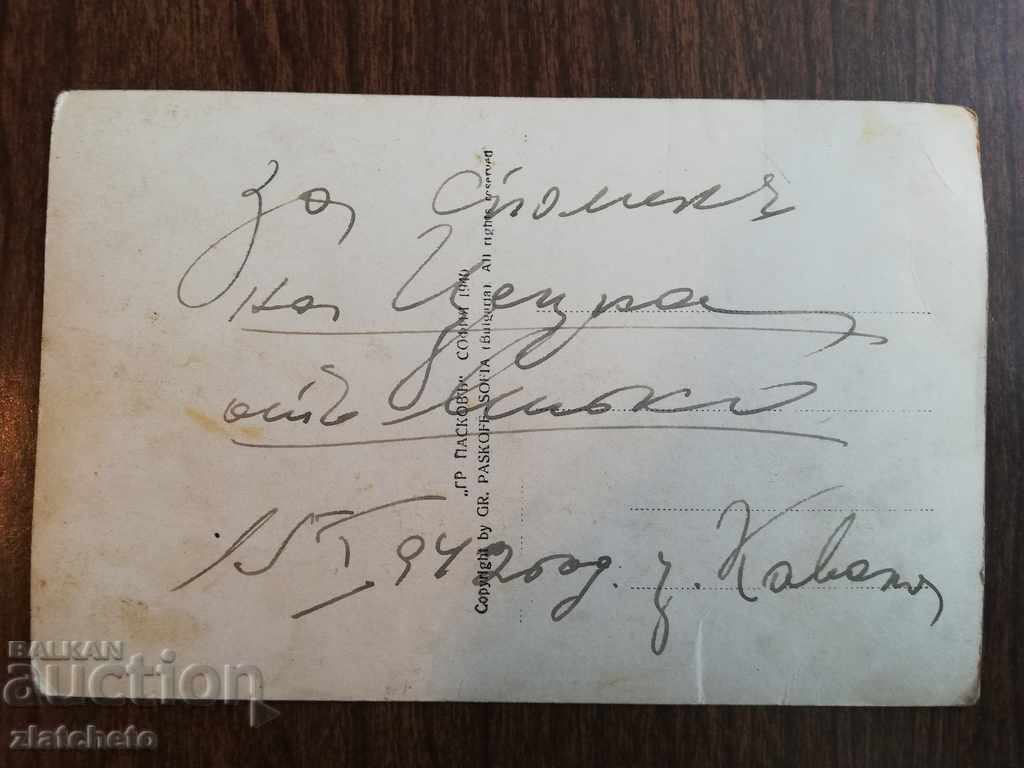 За споменъ
на
отъ
15 I 942 год. гр. Кавала
„ГР ПАСКОВЪ“ СОФИЯ 1940
Copyright by GR. PASKOFF-SOFIA (Bulgaria). All rights reserved
BALKAN
auction
zlatcheto